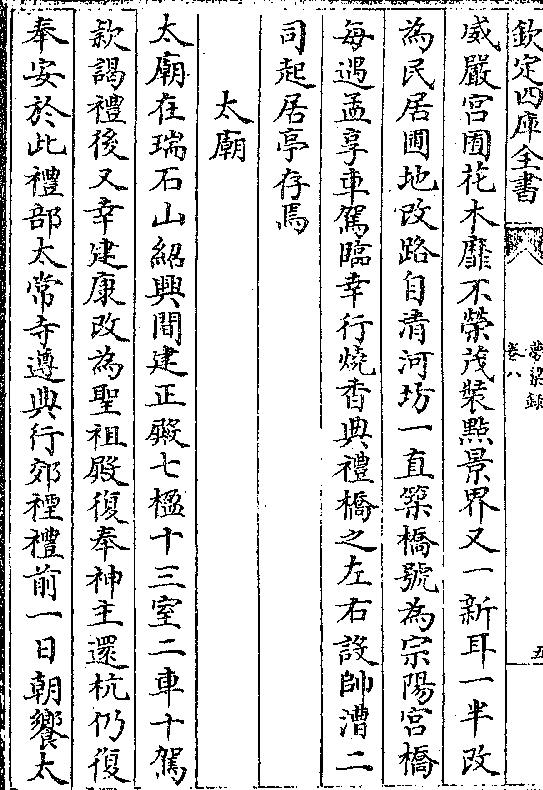 欽定四庫全書
夢粱錄
卷八
五
威嚴宮囿花木靡不榮茂裝點景界又一新耳一半改
為民居圃地改路自清河坊一直築橋號為宗陽宮橋
每遇孟享車駕臨幸行燒香典禮橋之左右設帥漕二
司起居亭存焉
太廟
太廟在瑞石山紹興間建正殿七楹十三室二車十駕
款謁禮後又幸建康改為聖祖殿復奉神主還杭仍復
奉安於此禮部太常寺遵典行郊禋禮前一日朝饗太